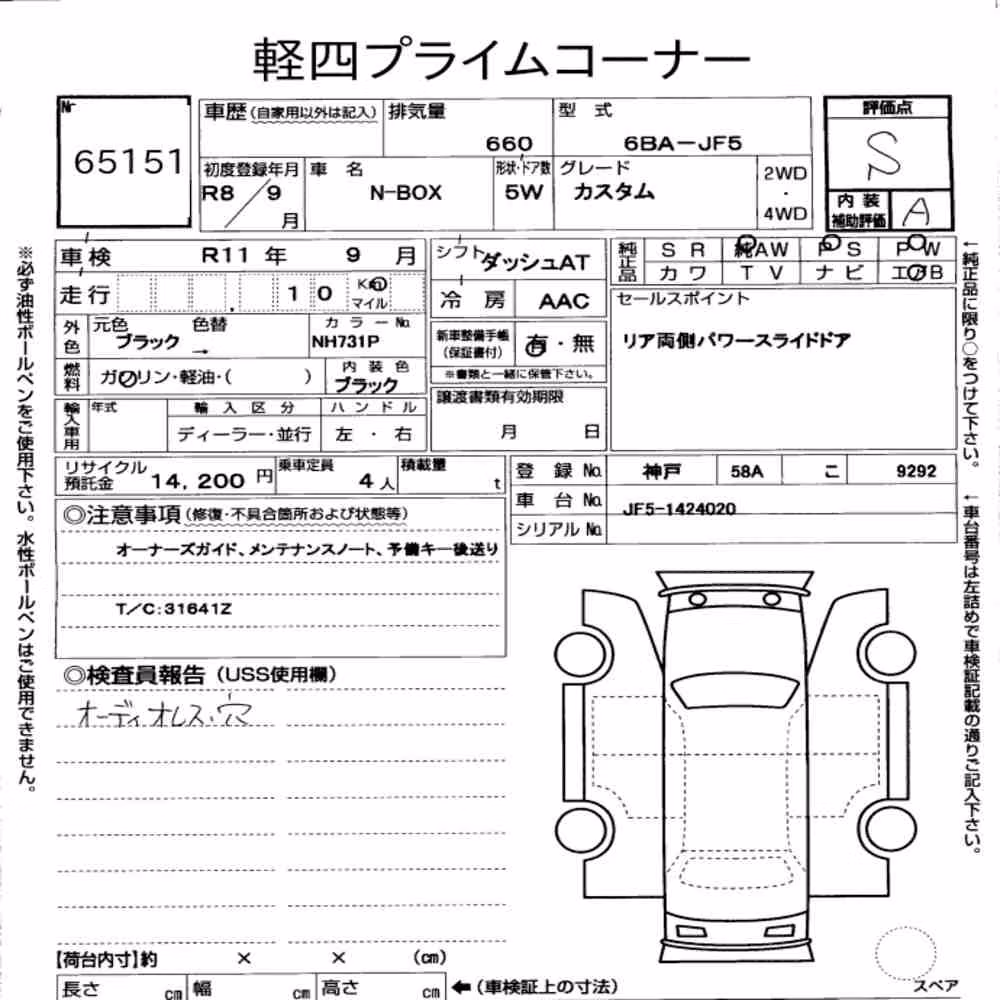 軽四プライムコーナー
Nr
65151
車歴(自家用以外は記入) 排気量 660 型 式 6BA-JF5
評価点
S
初度登録年月 R8/9月 車 名 N-BOX 形状・ドア数 5W グレード カスタム 2WD・4WD
内装補助評価 A
車検 R11年 9月
シフト ダッシュAT
純正品 SR 純AW PS PW
カワ TV ナビ エアB
走行 10 Km マイル
冷 房 AAC
セールスポイント
リア両側パワースライドドア
外色 元色 ブラック 色替 → カラーNo. NH731P
新車整備手帳(保証書付) 有・無
※書類と一緒に保管下さい。
燃料 ガソリン・軽油・( ) 内装色 ブラック
譲渡書類有効期限
月 日
輸入車用 年式 輸入区分 ハンドル
ディーラー・並行 左・右
リサイクル預託金 14,200円 乗車定員 4人 積載量 t
登録No. 神戸 58A こ 9292
車台No. JF5-1424020
シリアルNo.
◎注意事項(修復・不具合箇所および状態等)
オーナーズガイド、メンテナンスノート、予備キー後送り
T/C:31641Z
◎検査員報告(USS使用欄)
オーディオレス・穴
【荷台内寸】約 × × (cm)
長さ cm 幅 cm 高さ cm ←(車検証上の寸法)
スペア
※必ず油性ボールペンをご使用下さい。水性ボールペンはご使用できません。
←純正品に限り○をつけて下さい。
←車台番号は左詰めで車検証記載の通りご記入下さい。